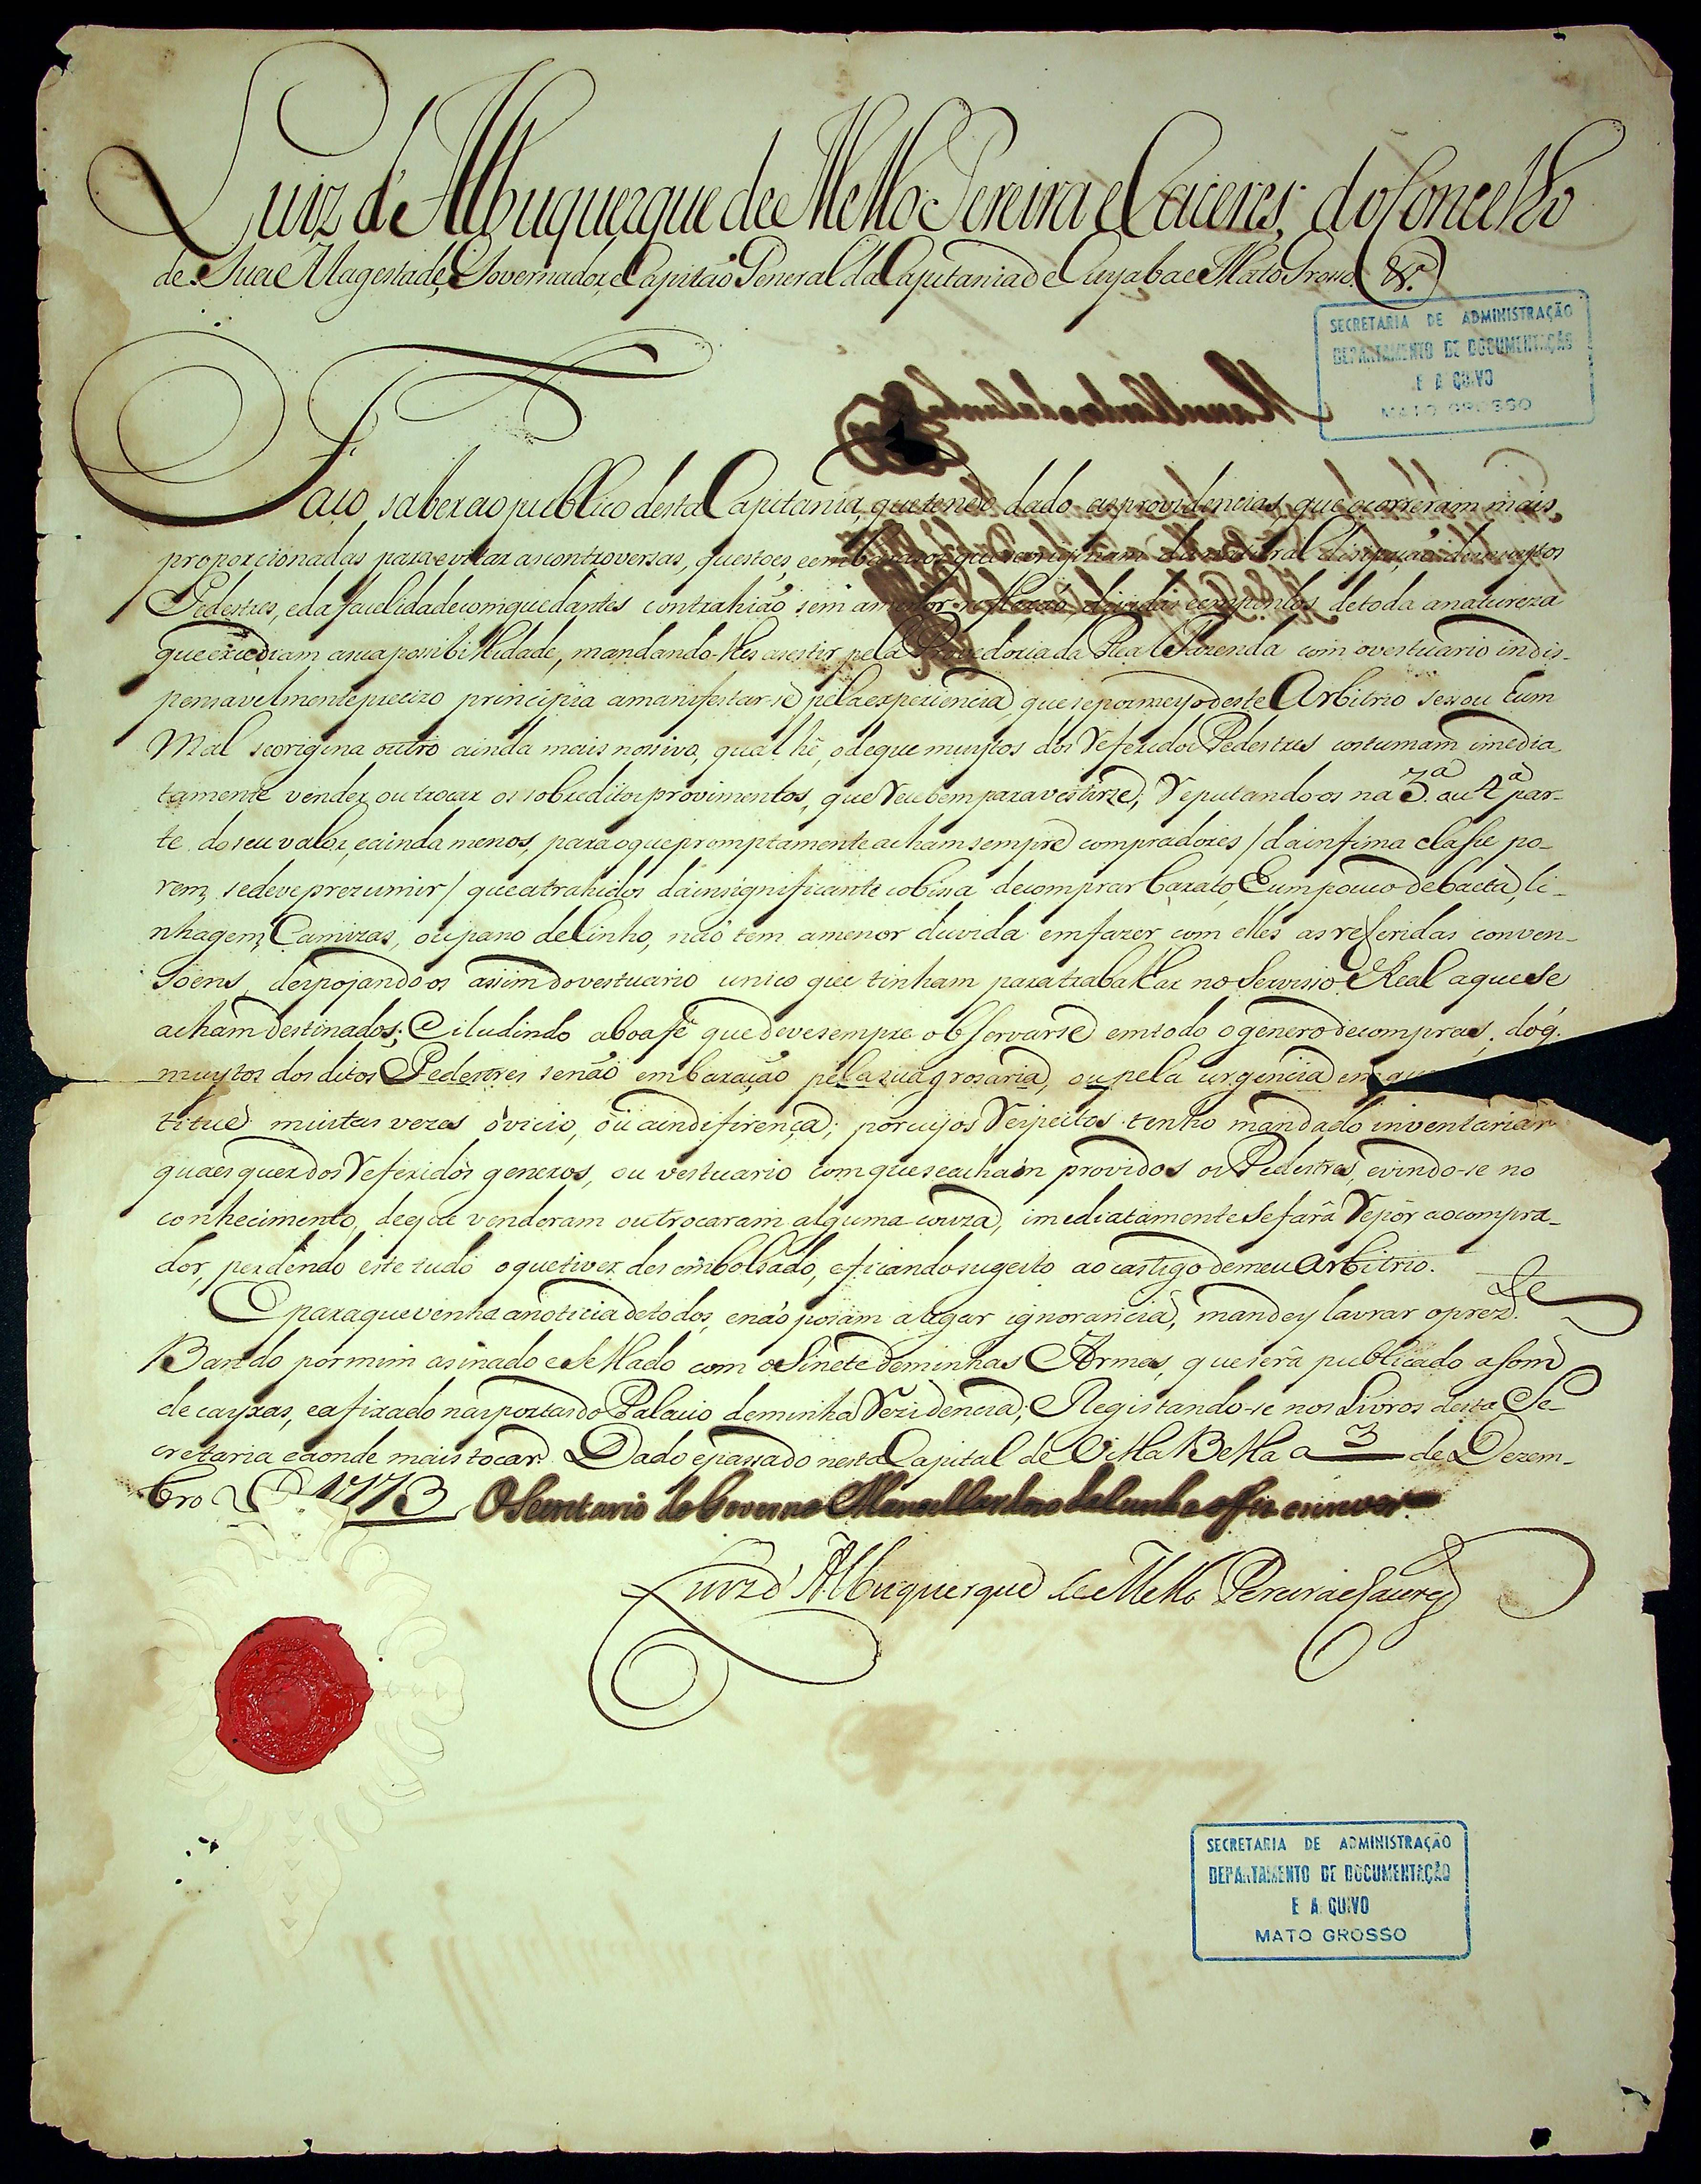 Luiz d'Albuquerque de Mello Pereira e Caceres, do Concelho
de Sua Magestade, Governador, e Capitão General da Capitania de Cuyaba e Mato Grosso. &.ª
SECRETARIA DE ADMINISTRAÇÃO
DEPARTAMENTO DE DOCUMENTAÇÃO
E A QUIVO
MATO GROSSO
Faço saber ao publico desta Capitania, que tendo dado as providencias, que ocorreram mais
proporcionadas para evitar as controversas, questoes, e embarasos que se originam da natural disipação de muytos
Pedestres, e da facelidade com que dantes contrahião sem a menor reflexão, dividas e empenhos de toda a natureza
que excediam a sua posibillidade, mandando-lhes asestir pela Provedoria da Real Fazenda com o vestuario indis-
pensavelmente precizo principia a manifestar-se pela experiencia, que se por meyo deste Arbitrio sessou hum
Mal se origina outro ainda mais nossivo, qual he, o de que muytos dos referidos Pedestres costumam imedia
tamente vender, ou trocar os sobreditos provimentos, que recebem para vestirse, reputando-os na 3.ª ou 4.ª par-
te do seu valor, e ainda menos, para o que promptamente acham sempre compradores / da infima classe po-
rem, se deve prezumir / que atrahidos da insignificante cobissa de comprar barato, hum pouco de baeta, li-
nhagem, Camizas, ou pano de Linho, não tem a menor duvida em fazer com elles as referidas conven-
soens, despojando os assim do vestuario unico que tinham para trabalhar no Servisso Real a que se
acham destinados; e iludindo a boa fé que deve sempre observarse em todo o genero de compras, do q.
muytos dos ditos Pedestres se não embaração pela sua grosaria, ou pela urgencia em que
titue muitas vezes o vicio, ou a indifirença; por cujos respeitos tenho mandado inventariar
quaes quer dos referidos generos, ou vestuario com que se acham providos os Pedestres, e vindo-se no
conhecimento, de que venderam ou trocaram alguma couza, imediatamente se fará repôr ao compra-
dor, perdendo este tudo o que tiver desembolsado, e ficando sugeito ao castigo de meu Arbitrio.
E para que venha a noticia de todos, e não posam alegar ignorancia, mandey lavrar o prez.te
Bando por mim asinado e Sellado com o Sinete de minhas Armas, que será publicado a som
de cayxas, e afixado nas portas do Palacio de minha rezidencia, Registando-se nos Livros desta Se-
cretaria e aonde mais tocar. Dado e passado nesta Capital de Villa Bella a 3 de Dezem-
bro de 1773 O Secretario do Governo Manoel Cardoso da Cunha o fiz escrever
Luiz d'Albuquerque de Mello Pereira e Caceres
SECRETARIA DE ADMINISTRAÇÃO
DEPARTAMENTO DE DOCUMENTAÇÃO
E A QUIVO
MATO GROSSO